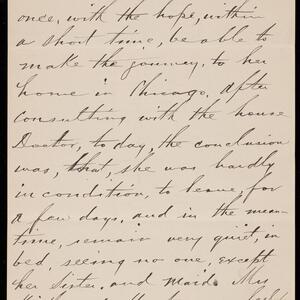 once, with the hope, within
a short time, be able to
make the journey, to her
home in Chicago, After
consulting with the house
Doctor, to day, the conclusion
was, that, she was hardly
in condition, to leave, for
a few days, and in the mean-
time, remain very quiet, in
bed, seeing no one, except
her Sister, and maid. My